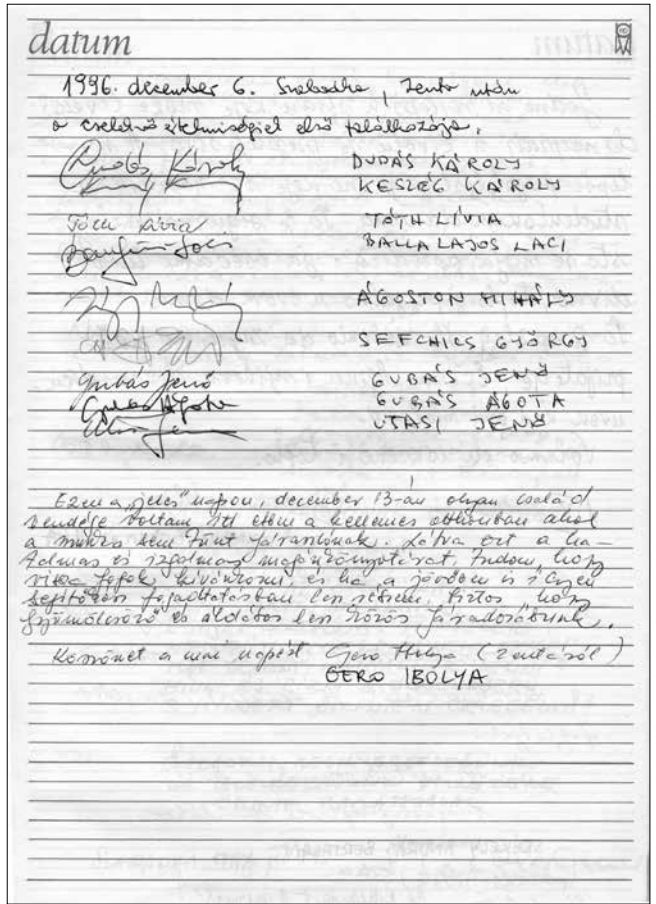 datum
1996. december 6. Szabadka, Zenta után
a cselekvő értelmiségiek első találkozója.
Dudás Károly DUDÁS KÁROLY
KESZÉG KÁROLY
Tóth Lívia TÓTH LÍVIA
BALLA LAJOS LACI
ÁGOSTON MIHÁLY
SEFCHICS GYÖRGY
Gubás Jenő GUBÁS JENŐ
Gubás Ágota GUBÁS ÁGOTA
UTASI JENŐ
Ezen a „jeles” napon, december 13-án olyan család
vendége voltam itt ebben a kellemes otthonban ahol
a munka sem tűnt fárasztónak. Látva ezt a ha-
talmas és izgalmas magánkönyvtárat, tudom, hogy
vissza fogok kívánkozni, és ha a jövőben is ilyen
segítőkész fogadtatásban lesz részem, biztos hogy
gyümölcsöző és áldásos lesz közös fáradozásunk.
Köszönet a mai napért Gerő Ibolya (Zentáról)
GERO IBOLYA